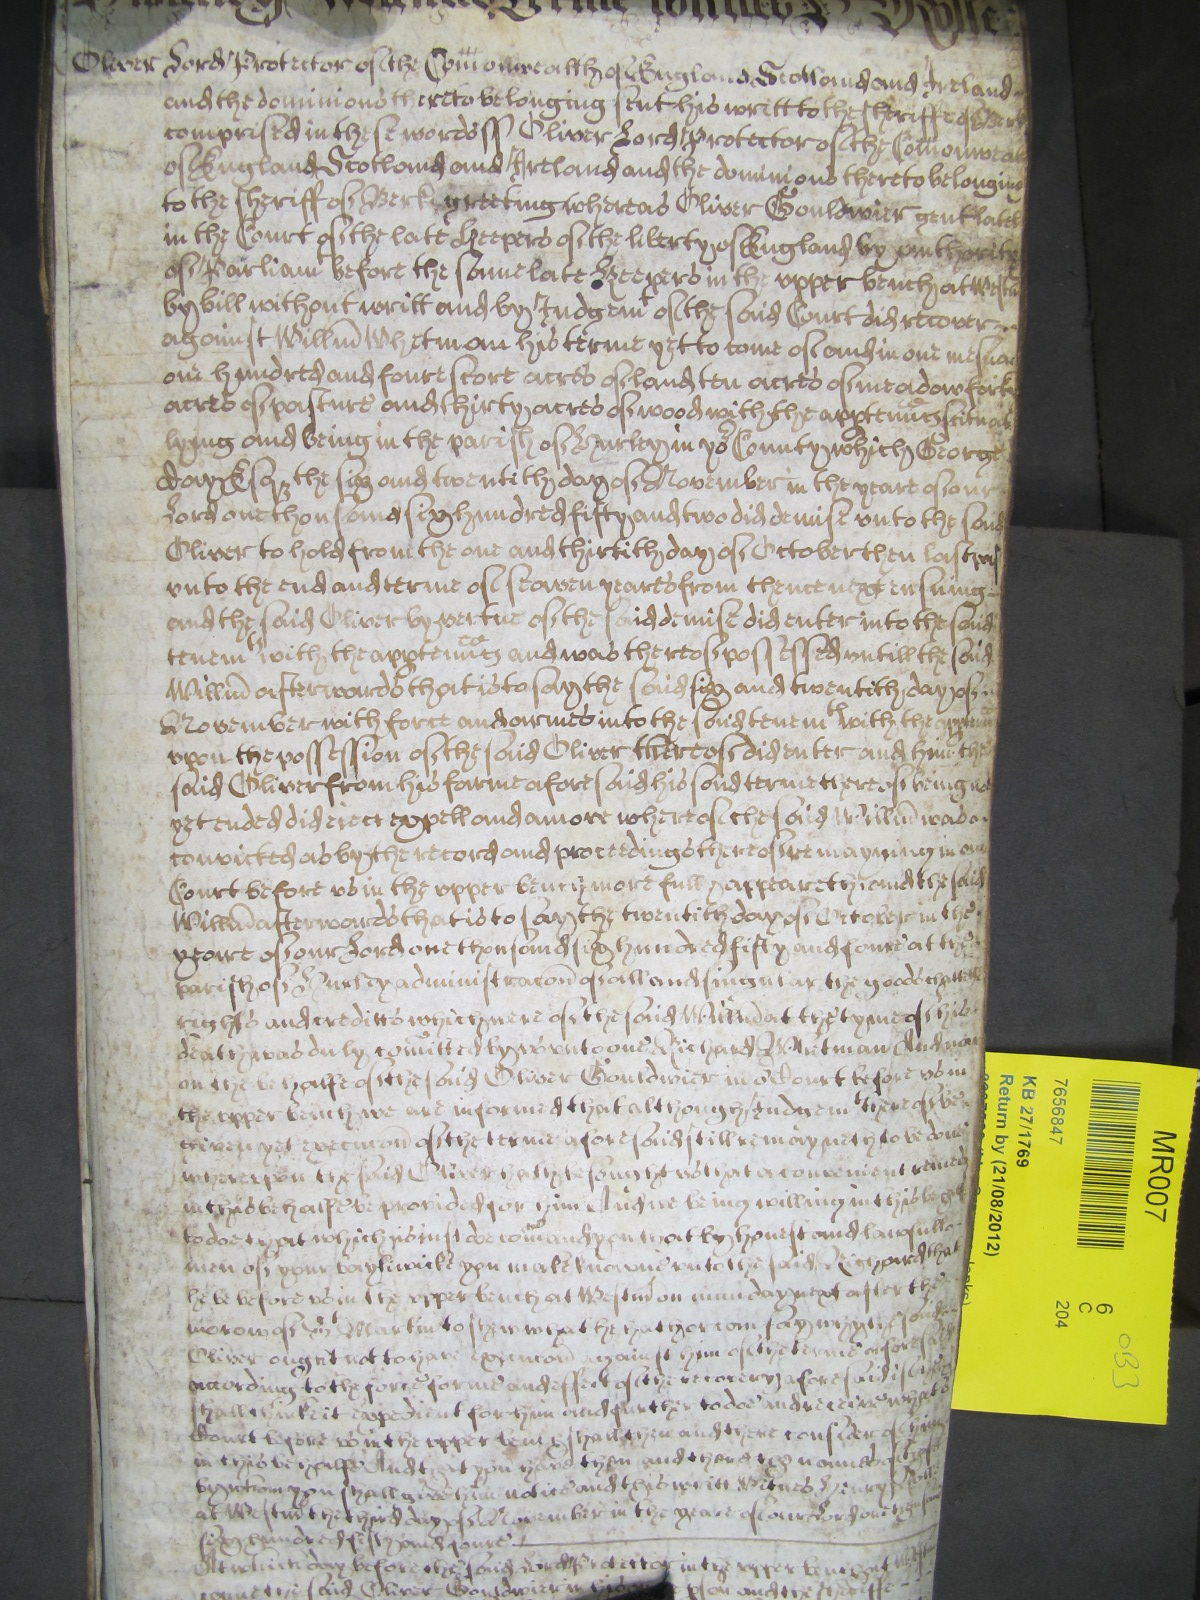 Oliver Lord Protector of the Comonwealth of England Scotland and Ireland
and the dominions thereto belonging sent his writt to the Sheriffe of Berk
comprised in these words ss Oliver Lord Protector of the Comonwea
of England Scotland and Ireland and the dominions thereto belonging
to the sheriff of Berk greeting whereas Oliver Gouldwier gent late
in the Court of the late Keepers of the liberty of England by authority
of Parliamt before the same late Keepers in the upper bench at Westm
by bill without writt and by Judgemt of the said Court did recover
against Willm Whetman his terme yet to come of and in one messua
one hundred and foure score acres of land ten acres of meadow forty
acres of pasture and thirty acres of wood with the apptennc scituat
lying and being in the parish of Hurley in yor County which George
day Esqr the six and twentith day of November in the yeare of our
Lord one thousand six hundred fifty and two did demise unto the said
Oliver to hold from the one and thirtith day of October then last
unto the end and terme of seaven yeares from thence next ensuing
and the said Oliver by vertue of the said demise did enter into the said
tenemts with the apptennc and was thereof possessed untill the said
Willm afterwards that is to say the said six and twentith day of
November with force and armes into the said tenemts with the apptennc
upon the possession of the said Oliver thereof did enter and him the
said Oliver from his farme aforesaid his said terme thereof being not
yet ended did eiect expell and amove whereof the said Willm was
convicted as by the record and proceedings thereof remayning in our
Court before us in the upper bench more fully appeareth and the said
Willm afterwards that is to say the twentith day of October in the
yeare of our Lord one thousand six hundred fifty and foure at the
parish of Hurley administracon of all and singular the goods chattells
rights and creditts which were of the said Willm at the tyme of his
death was duly comitted by us unto one Richard Whetman And now
on the behalfe of the said Oliver Gouldwier in or Court before us in
the upper bench we are informed that although Judgemt thereof be
given yet execucon of the terme aforesaid still remayneth to be done
whereupon the said Oliver hath besought us that a convenient remedy
in this behalfe be provided for him And we being willing in this behalfe
to doe that which is iust doe comand you that by honest and lawfull
men of your baylwicke you make knowne unto the said Richard that
he be before us in the upper bench at Westm on munday next after the
morow of St Martin to shew what he hath or can say why the said
Oliver ought not to have execucon against him of the terme aforesaid
according to the force forme and effect of the recovery aforesaid if he
shall thinke it expedient for him and further to doe and receive what or
Court before us in the upper bench shall then and there consider of him
in this behalfe And that you have then and there the names of those
by whom you shall give him notice and this writt Witnes Henry Rolle
at Westm the third day of November in the yeare of our Lord one thousand
six hundred fifty and foure
At which day before the said Lord Protector in the upper bench at Westm
came the said Oliver Gouldwier in his proper person and the Sheriffe
MR007
7656847
KB 27/1769
Return by (21/08/2012)
6
C
204
0B3